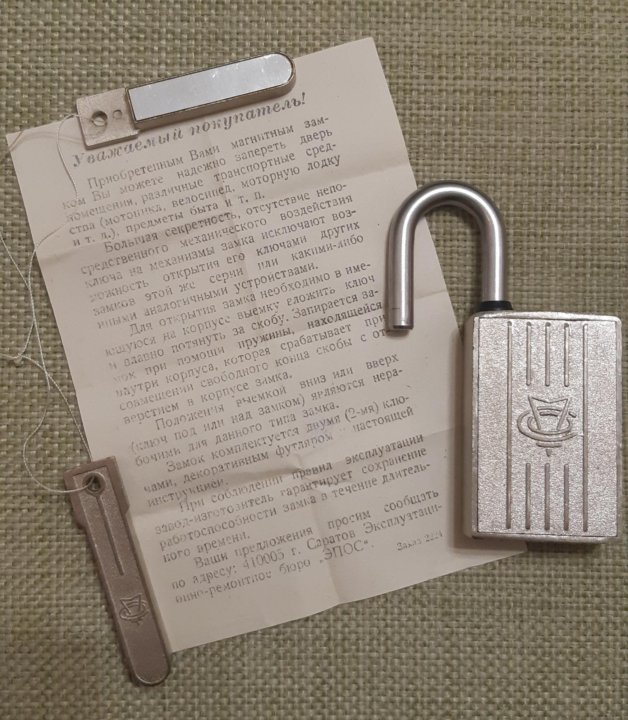 Уважаемый покупатель!
Приобретенным Вами магнитным зам-
ком Вы можете надежно запереть дверь
помещения, различные транспортные сред-
ства (мотоцикл, велосипед, моторную лодку
и т. п.), предметы быта и т. п.
Большая секретность, отсутствие непо-
средственного механического воздействия
ключа на механизмы замка исключают воз-
можность открытия его ключами других
замков этой же серии или какими-либо
иными аналогичными устройствами.
Для открытия замка необходимо в име-
ющуюся на корпусе выемку вложить ключ
и плавно потянуть за скобу. Запирается за-
мок при помощи пружины, находящейся
внутри корпуса, которая срабатывает при
совмещении свободного конца скобы с от-
верстием в корпусе замка.
Положения выемкой вниз или вверх
(ключ под или над замком) являются нера-
бочими для данного типа замка.
Замок комплектуется двумя (2-мя) клю-
чами, декоративным футляром настоящей
инструкцией.
При соблюдении правил эксплуатации
завод-изготовитель гарантирует сохранение
работоспособности замка в течение длитель-
ного времени.
Ваши предложения просим сообщать
по адресу: 410005 г. Саратов Эксплуатаци-
онно-ремонтное бюро „ЭПОС“. Заказ